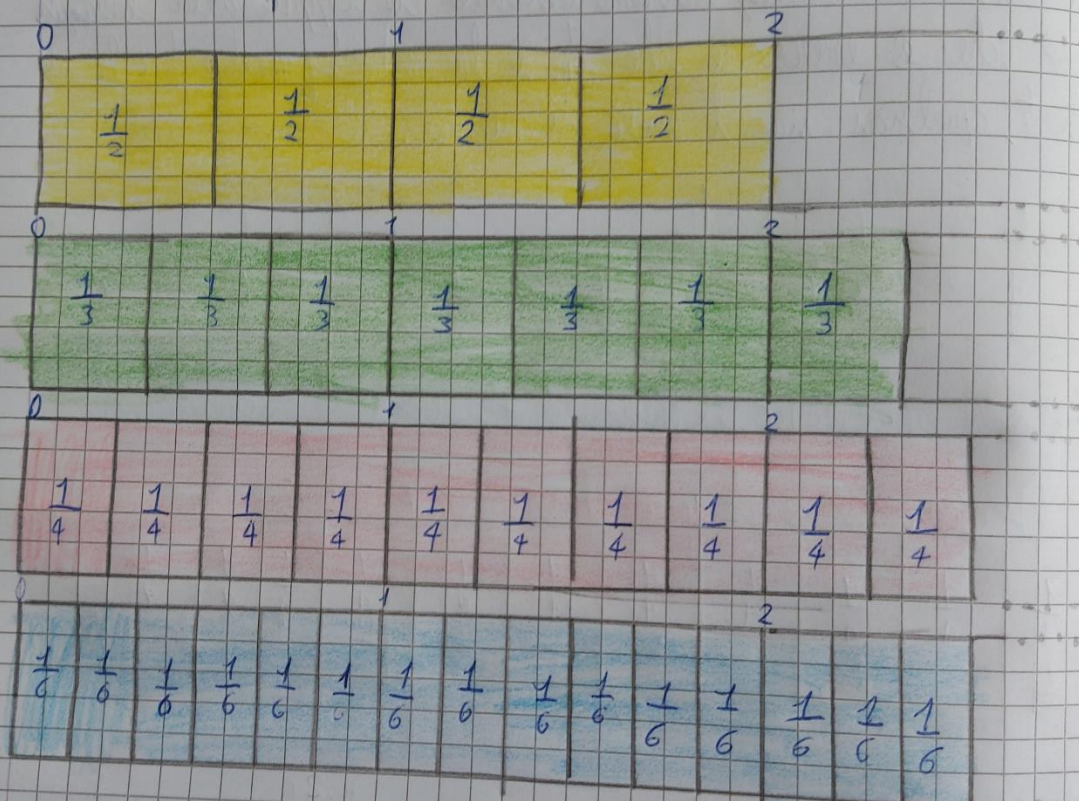 0 1 2
1/2 1/2 1/2 1/2
0 1 2
1/3 1/3 1/3 1/3 1/3 1/3 1/3
0 1 2
1/4 1/4 1/4 1/4 1/4 1/4 1/4 1/4 1/4 1/4
0 1 2
1/6 1/6 1/6 1/6 1/6 1/6 1/6 1/6 1/6 1/6 1/6 1/6 1/6 1/6 1/6